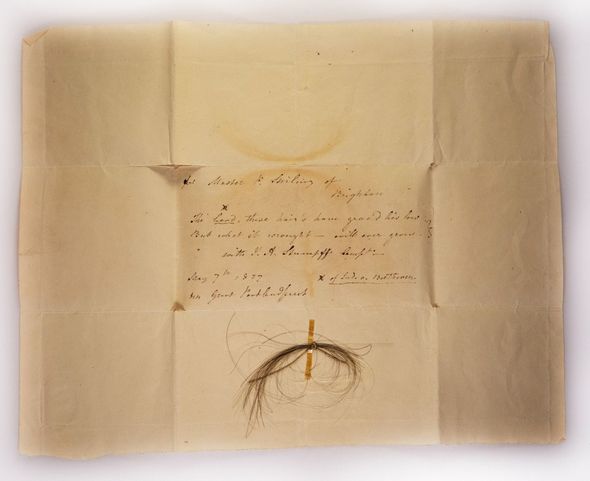 for Master P. Stirling of
Brighton
x
The head, these hair's have grac'd lies low
But what it wrought – will ever grow.
with J. A. Stumpff Compts –
May 7th 1827
x of Lud. v. Beethoven
Great Portland Street